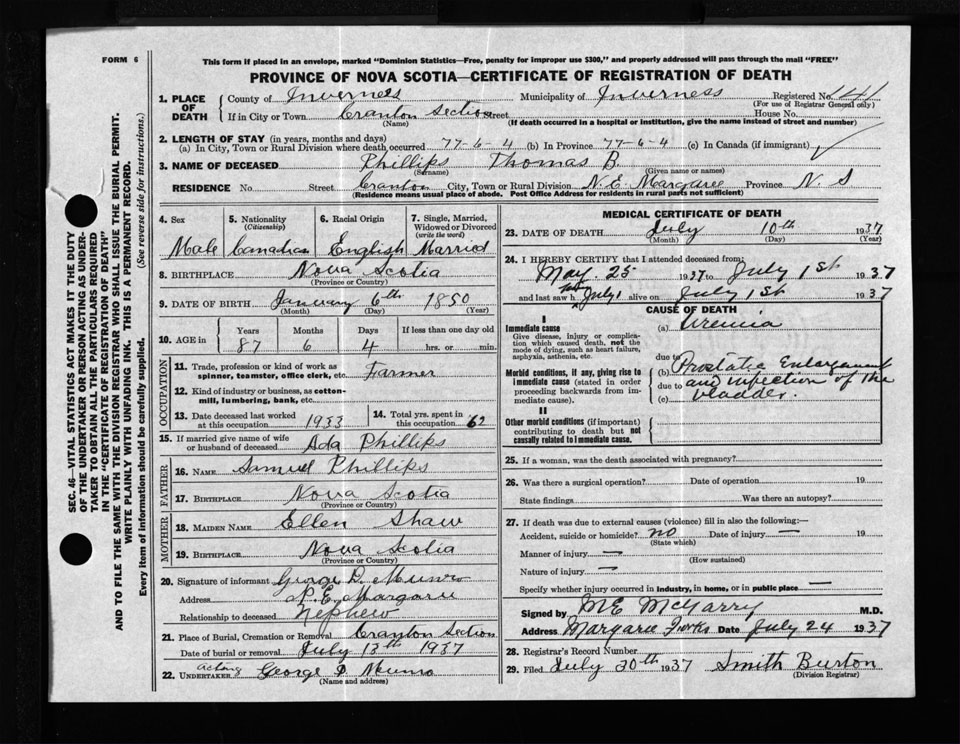 FORM 6
This form if placed in an envelope, marked "Dominion Statistics—Free, penalty for improper use $300," and properly addressed will pass through the mail "FREE"
PROVINCE OF NOVA SCOTIA—CERTIFICATE OF REGISTRATION OF DEATH
SEC. 46—VITAL STATISTICS ACT MAKES IT THE DUTY
OF THE UNDERTAKER OR PERSON ACTING AS UNDER-
TAKER TO OBTAIN ALL THE PARTICULARS REQUIRED
IN THE "CERTIFICATE OF REGISTRATION OF DEATH"
AND TO FILE THE SAME WITH THE DIVISION REGISTRAR WHO SHALL ISSUE THE BURIAL PERMIT.
WRITE PLAINLY WITH UNFADING INK. THIS IS A PERMANENT RECORD.
Every item of information should be carefully supplied. (See reverse side for instructions.)
1. PLACE OF DEATH County of Inverness Municipality of Inverness Registered No. 141
(For use of Registrar General only)
If in City or Town Cranton Section Street House No.
(Name) (If death occurred in a hospital or institution, give the name instead of street and number)
2. LENGTH OF STAY (in years, months and days)
(a) In City, Town or Rural Division where death occurred 77-6-4 (b) In Province 77-6-4 (c) In Canada (if immigrant)
3. NAME OF DECEASED Phillips Thomas B
(Surname) (Given name or names)
RESIDENCE No. Street Cranton City, Town or Rural Division N.E. Margaree Province N. S
(Residence means usual place of abode. Post Office Address for residents in rural parts not sufficient)
4. Sex Male
5. Nationality (Citizenship) Canadian
6. Racial Origin English
7. Single, Married, Widowed or Divorced (write the word) Married
8. BIRTHPLACE Nova Scotia
(Province or Country)
9. DATE OF BIRTH January 6th 1850
(Month) (Day) (Year)
10. AGE in Years Months Days If less than one day old
87 6 4 hrs. or min.
OCCUPATION
11. Trade, profession or kind of work as spinner, teamster, office clerk, etc. Farmer
12. Kind of industry or business, as cotton-mill, lumbering, bank, etc.
13. Date deceased last worked at this occupation 1933
14. Total yrs. spent in this occupation 62
15. If married give name of wife or husband of deceased Ada Phillips
FATHER
16. NAME Samuel Phillips
17. BIRTHPLACE Nova Scotia
(Province or Country)
MOTHER
18. MAIDEN NAME Ellen Shaw
19. BIRTHPLACE Nova Scotia
(Province or Country)
20. Signature of informant George D. Munro
Address N.E. Margaree
Relationship to deceased Nephew
21. Place of Burial, Cremation or Removal Cranton Section
Date of burial or removal July 13th 1937
22. acting UNDERTAKER George D Munro
(Name and address)
MEDICAL CERTIFICATE OF DEATH
23. DATE OF DEATH July 10th 1937
(Month) (Day) (Year)
24. I HEREBY CERTIFY that I attended deceased from:
May. 25 1937 to July 1st 1937
and last saw h July 1 alive on July 1st 1937
CAUSE OF DEATH
I
Immediate cause
Give disease, injury or complication which caused death, not the mode of dying, such as heart failure, asphyxia, asthenia, etc.
(a) Uremia
due to
Morbid conditions, if any, giving rise to immediate cause (stated in order proceeding backwards from immediate cause).
(b) Prostatic Enlargement
due to and infection of the
(c) bladder.
II
Other morbid conditions (if important) contributing to death but not causally related to immediate cause.
25. If a woman, was the death associated with pregnancy?
26. Was there a surgical operation? Date of operation 19
State findings Was there an autopsy?
27. If death was due to external causes (violence) fill in also the following:—
Accident, suicide or homicide? no Date of injury — 19
(State which)
Manner of injury —
(How sustained)
Nature of injury —
Specify whether injury occurred in industry, in home, or in public place —
Signed by M E McGarry M.D.
Address Margaree Forks Date July 24 1937
28. Registrar's Record Number
29. Filed July 20th 1937 Smith Burton
(Division Registrar)